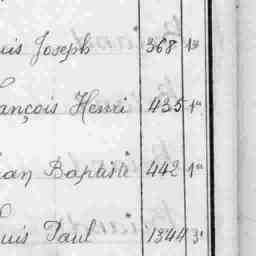 uis Joseph 368 1a
ançois Henri 435 1a
ean Baptiste 442 1a
uis Paul 1344 3e